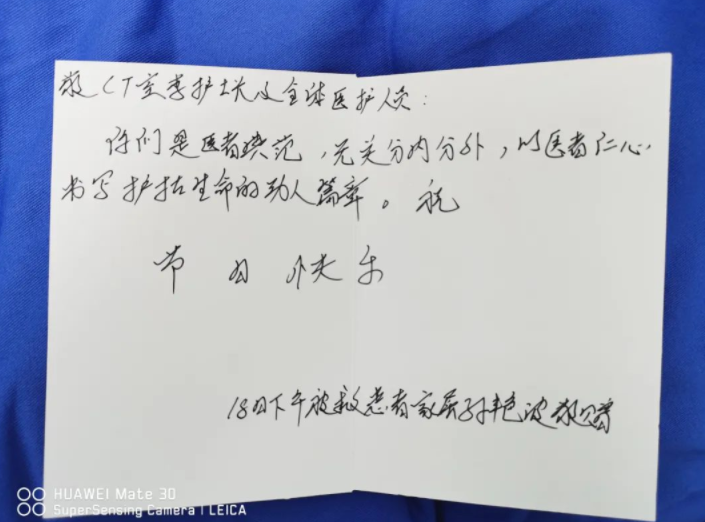 致CT室李护士长及全体医护人员：
你们是医者典范，无关分内分外，以医者仁心
书写护佑生命的动人篇章。祝
节日快乐
18日下午被救患者家属孙艳波敬
HUAWEI Mate 30
SuperSensing Camera | LEICA